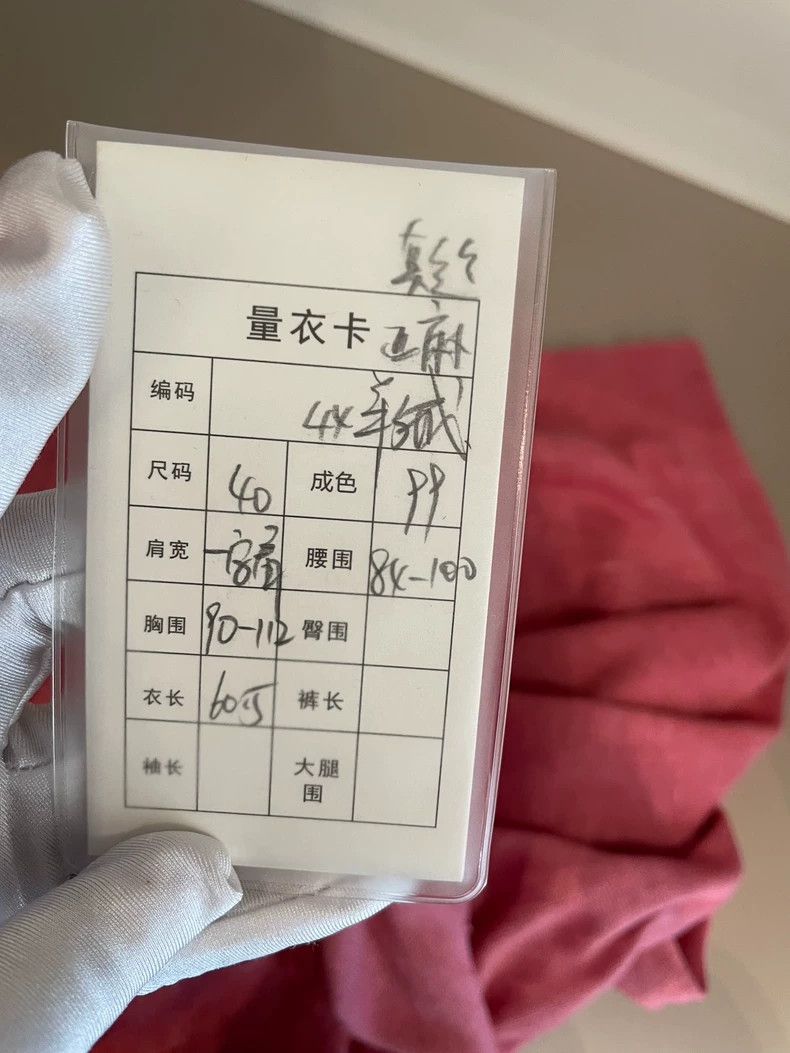 真丝
量衣卡 亚麻
编码 44 羊绒
尺码 40 成色 99
肩宽 一字肩 腰围 84-100
胸围 90-112 臀围
衣长 60 裤长
袖长 大腿
围